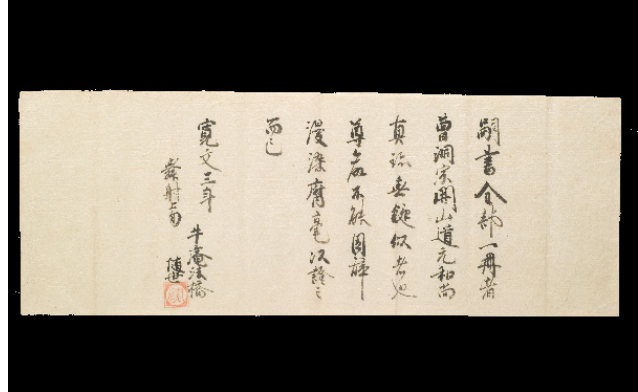 嗣書全部一冊者
曹洞宗開山道元和尚
真跡無疑似者也
尊命不能固辞
漫染腐毫以證之
而已
寛文三年
牛庵法橋